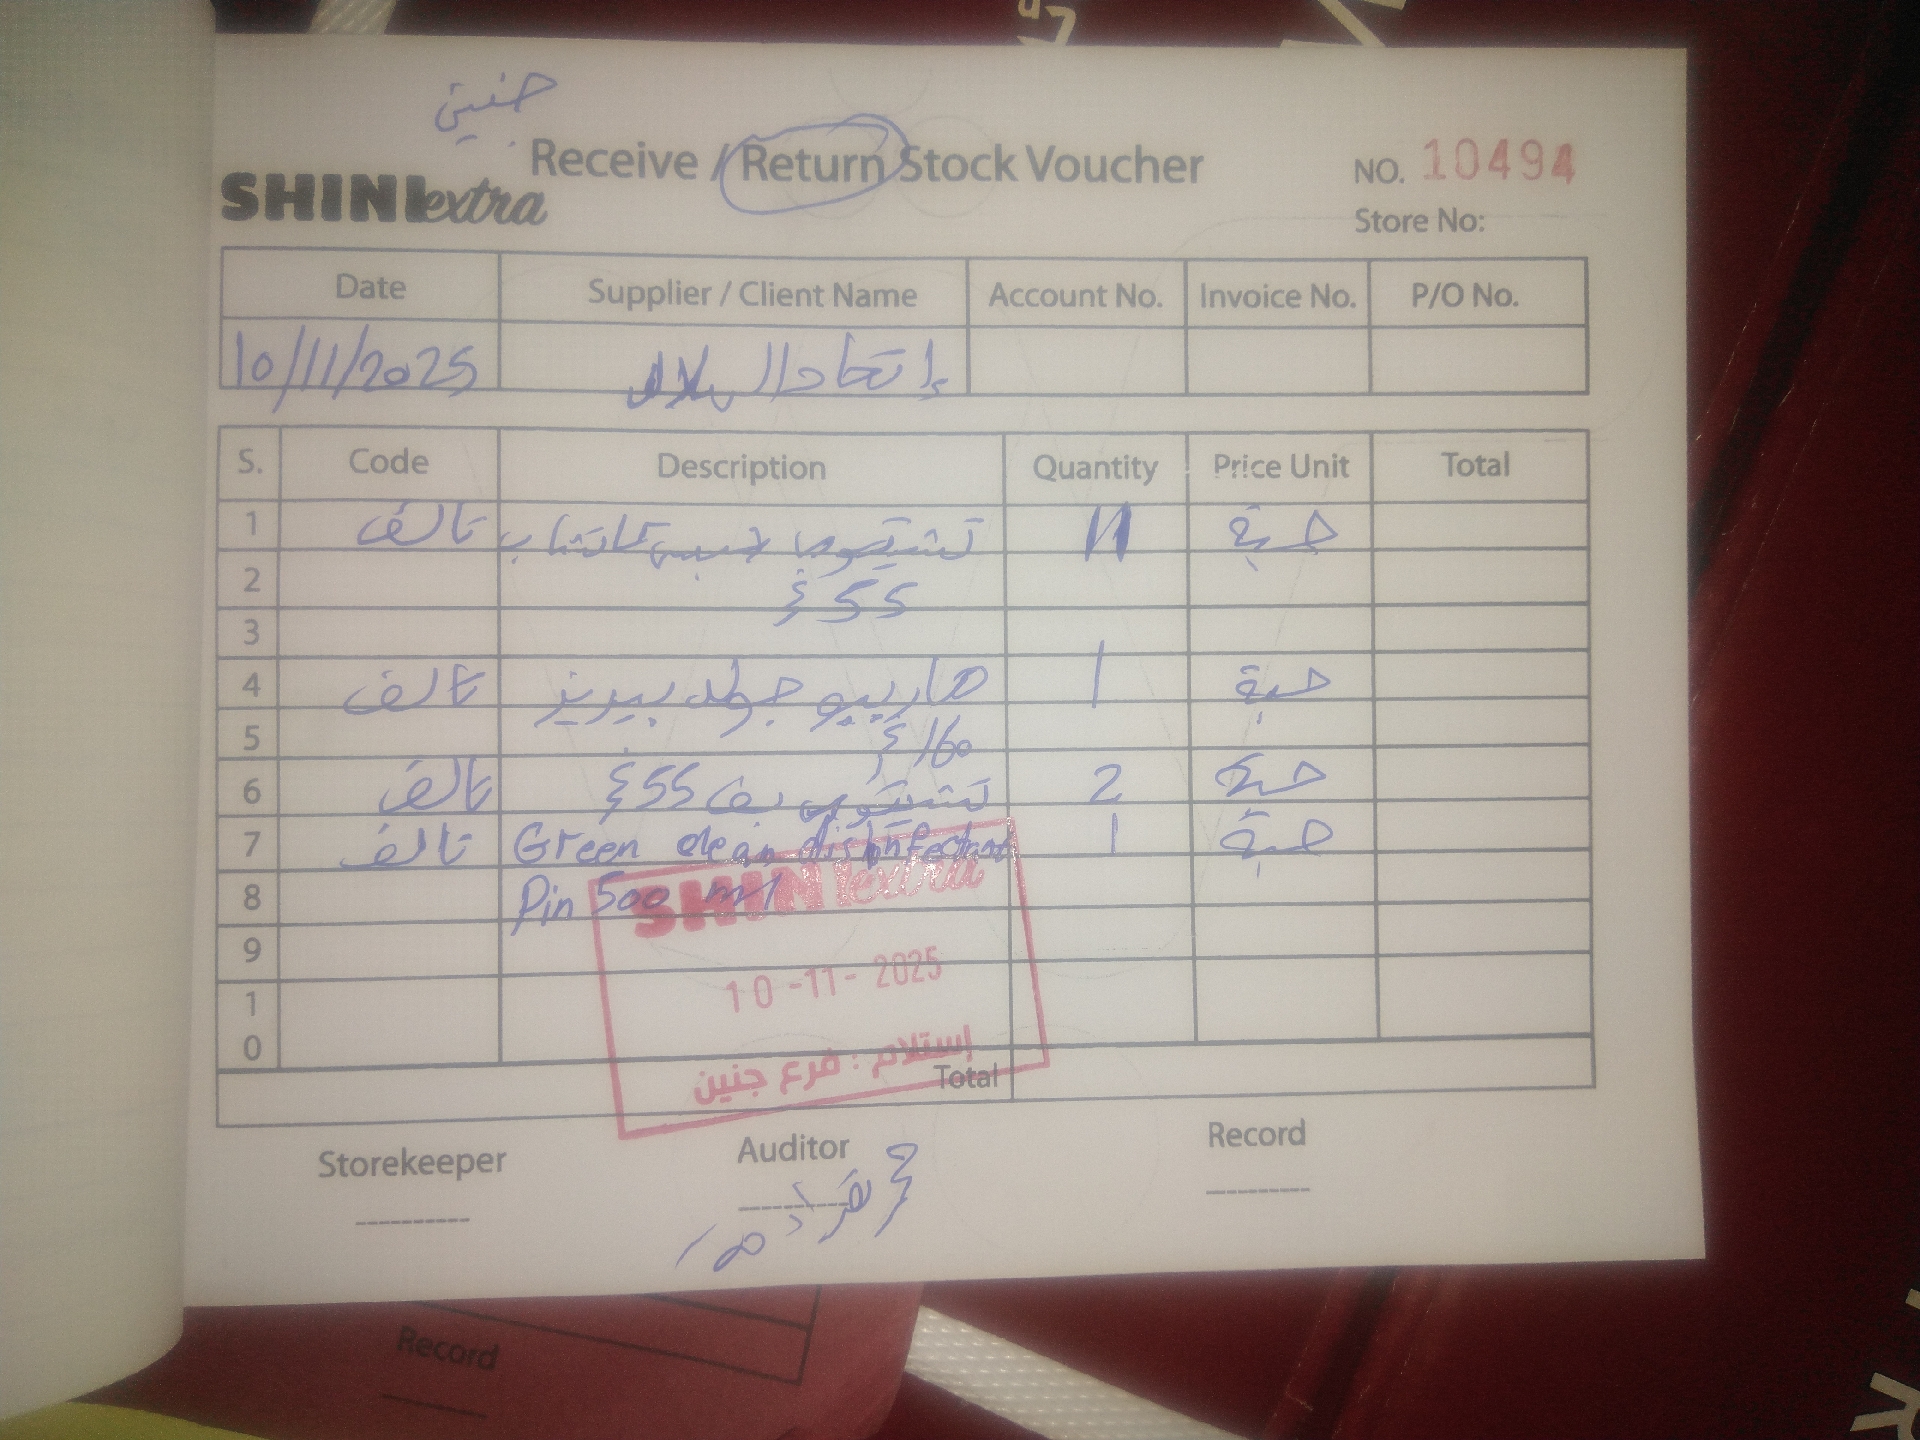 جنين
Receive / Return Stock Voucher
NO. 10494
SHINI extra
Store No:
Date Supplier / Client Name Account No. Invoice No. P/O No.
10/11/2025 إتحاد البلاد
S. Code Description Quantity Price Unit Total
1 تالف تشيتوس كاتشاب 11 حبة
2 55غ
3
4 تالف هاريبو جولد بيريز 1 حبة
5 160غ
6 تالف تشيتوس بف 55غ 2 حبة
7 تالف Green clean disinfectant 1 حبة
8 Pin 500 ml
9
10
SHINI extra
10-11-2025
إستلام : فرع جنين
Total
Storekeeper Auditor Record
Record